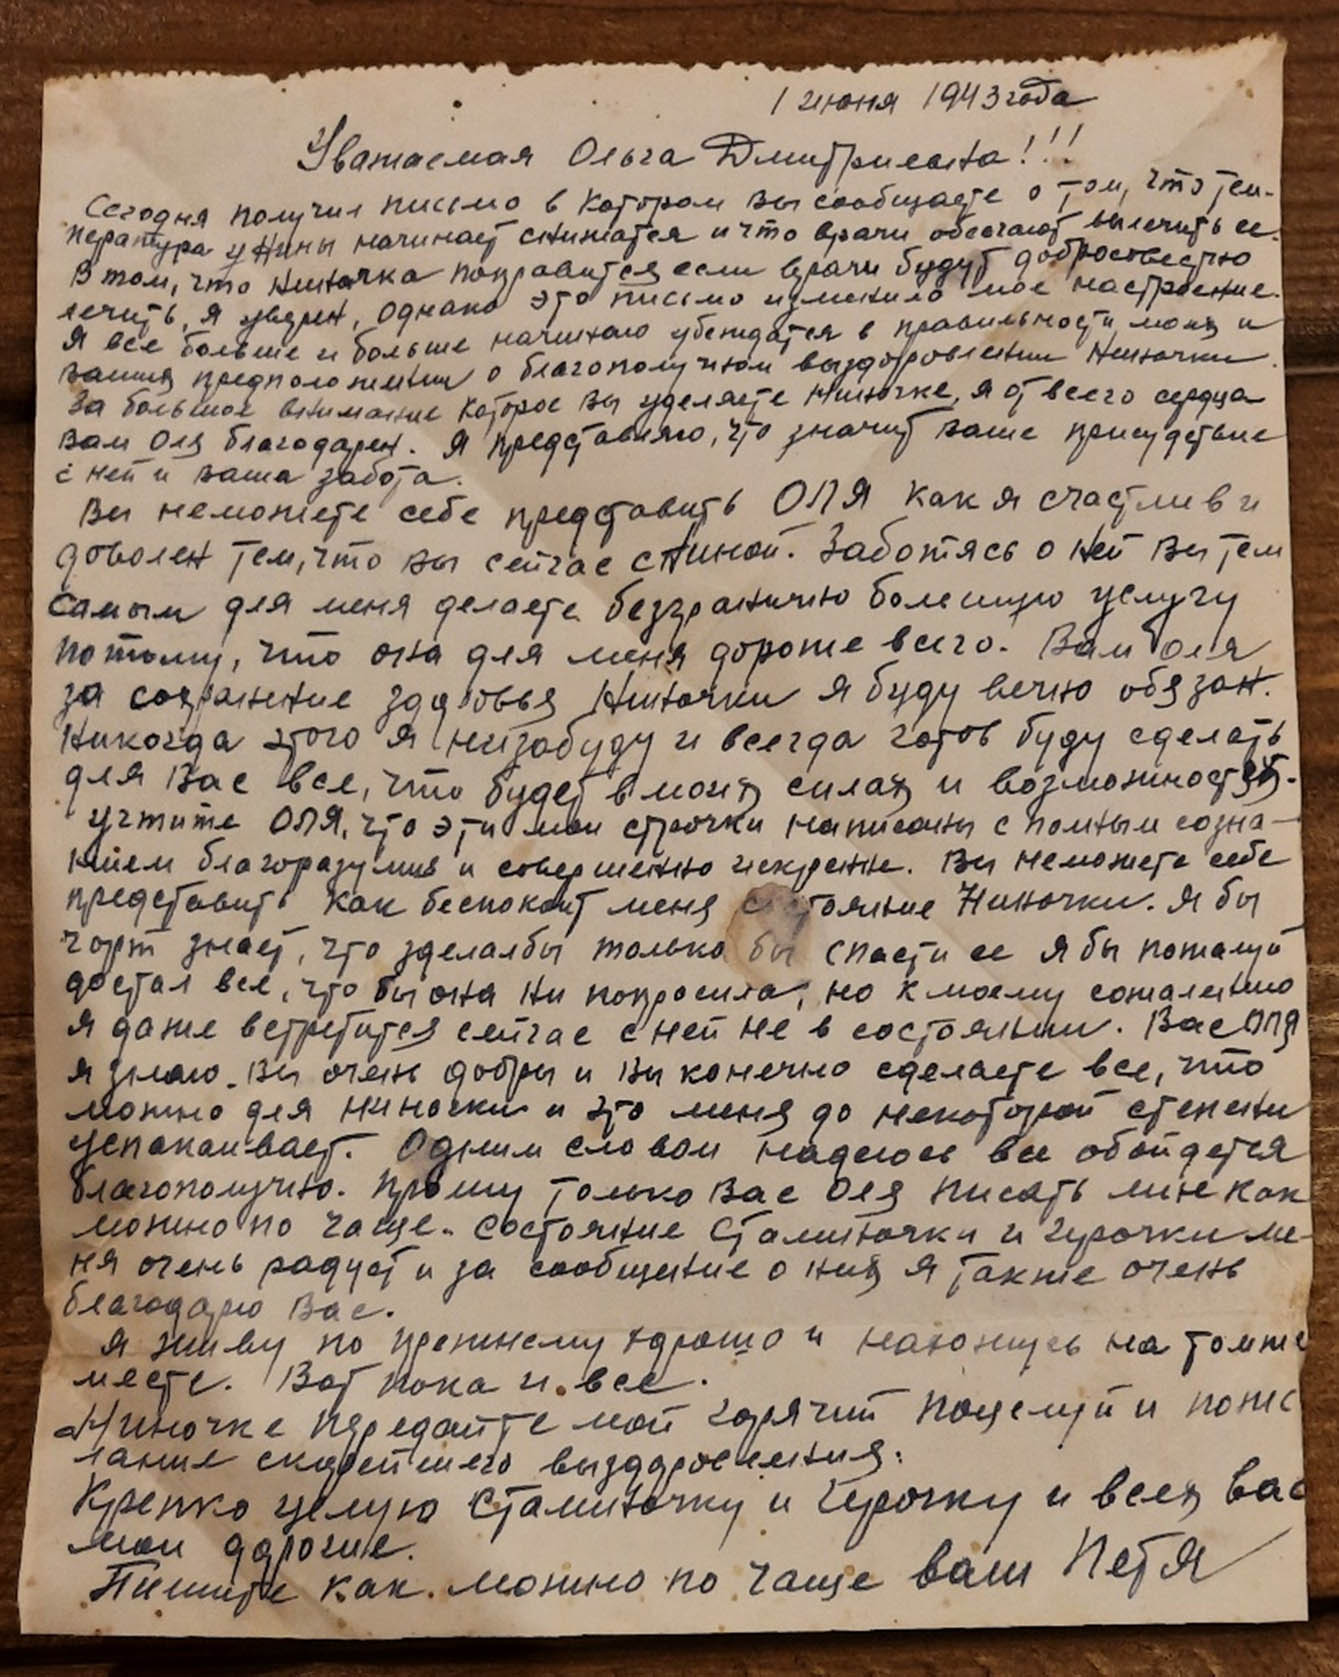 1 июня 1943 года
Уважаемая Ольга Дмитриевна!!!
Сегодня получил письмо в котором вы сообщаете о том, что тем-
пература у Нины начинает снижатся и что врачи обещают вылечить ее.
В том, что Ниночка поправится если врачи будут добросовестно
лечить, я уверен, однако это письмо изменило мое настроение.
Я все больше и больше начинаю убеждатся в правильности моих и
ваших предположении о благополучном выздоровлении Ниночки.
За большое внимание которое вы уделяете Ниночке, я от всего сердца
вам Оля благодарен. Я представляю, что значит ваше присудствие
с ней и ваша забота.
Вы неможете себе представить ОЛЯ как я счастлив и
доволен тем, что вы сейчас с Ниной. Заботясь о ней вы тем
самым для меня делаете безгранично большую услугу
потому, что она для меня дороже всего. Вам Оля
за сохранение здоровья Ниночки я буду вечно обязан.
Никогда этого я незабуду и всегда готов буду сделать
для вас все, что будет в моих силах и возможностях.
Учтите ОЛЯ, что эти мои строчки написаны с полным созна-
нием благоразумия и совершенно искренне. Вы неможете себе
представить как беспокоит меня состояние Ниночки. Я бы
чорт знает, что зделалбы только бы спасти ее я бы пожалуй
достал все, что бы она ни попросила, но к моему сожалению
я даже встретится сейчас с ней не в состоянии. Вас ОЛЯ
я знаю. Вы очень добры и вы конечно сделаете все, что
можно для Ниночки и это меня до некоторой степени
успакаивает. Одним словом надеюсь все обойдется
благополучно. Прошу только вас Оля писать мне как
можно по чаще. Состояние Сталиночки и Игрочки ме-
ня очень радует и за сообщение о них я также очень
благодарю вас.
Я живу по прежнему хорошо и нахожусь на томже
месте. Вот пока и все.
Ниночке передайте мой горячий поцелуй и поже
лание скорейшего выздоровления.
Крепко целую Сталиночку и Игрочку и всех вас
мои дорогие.
Пишите как можно по чаще ваш Петя